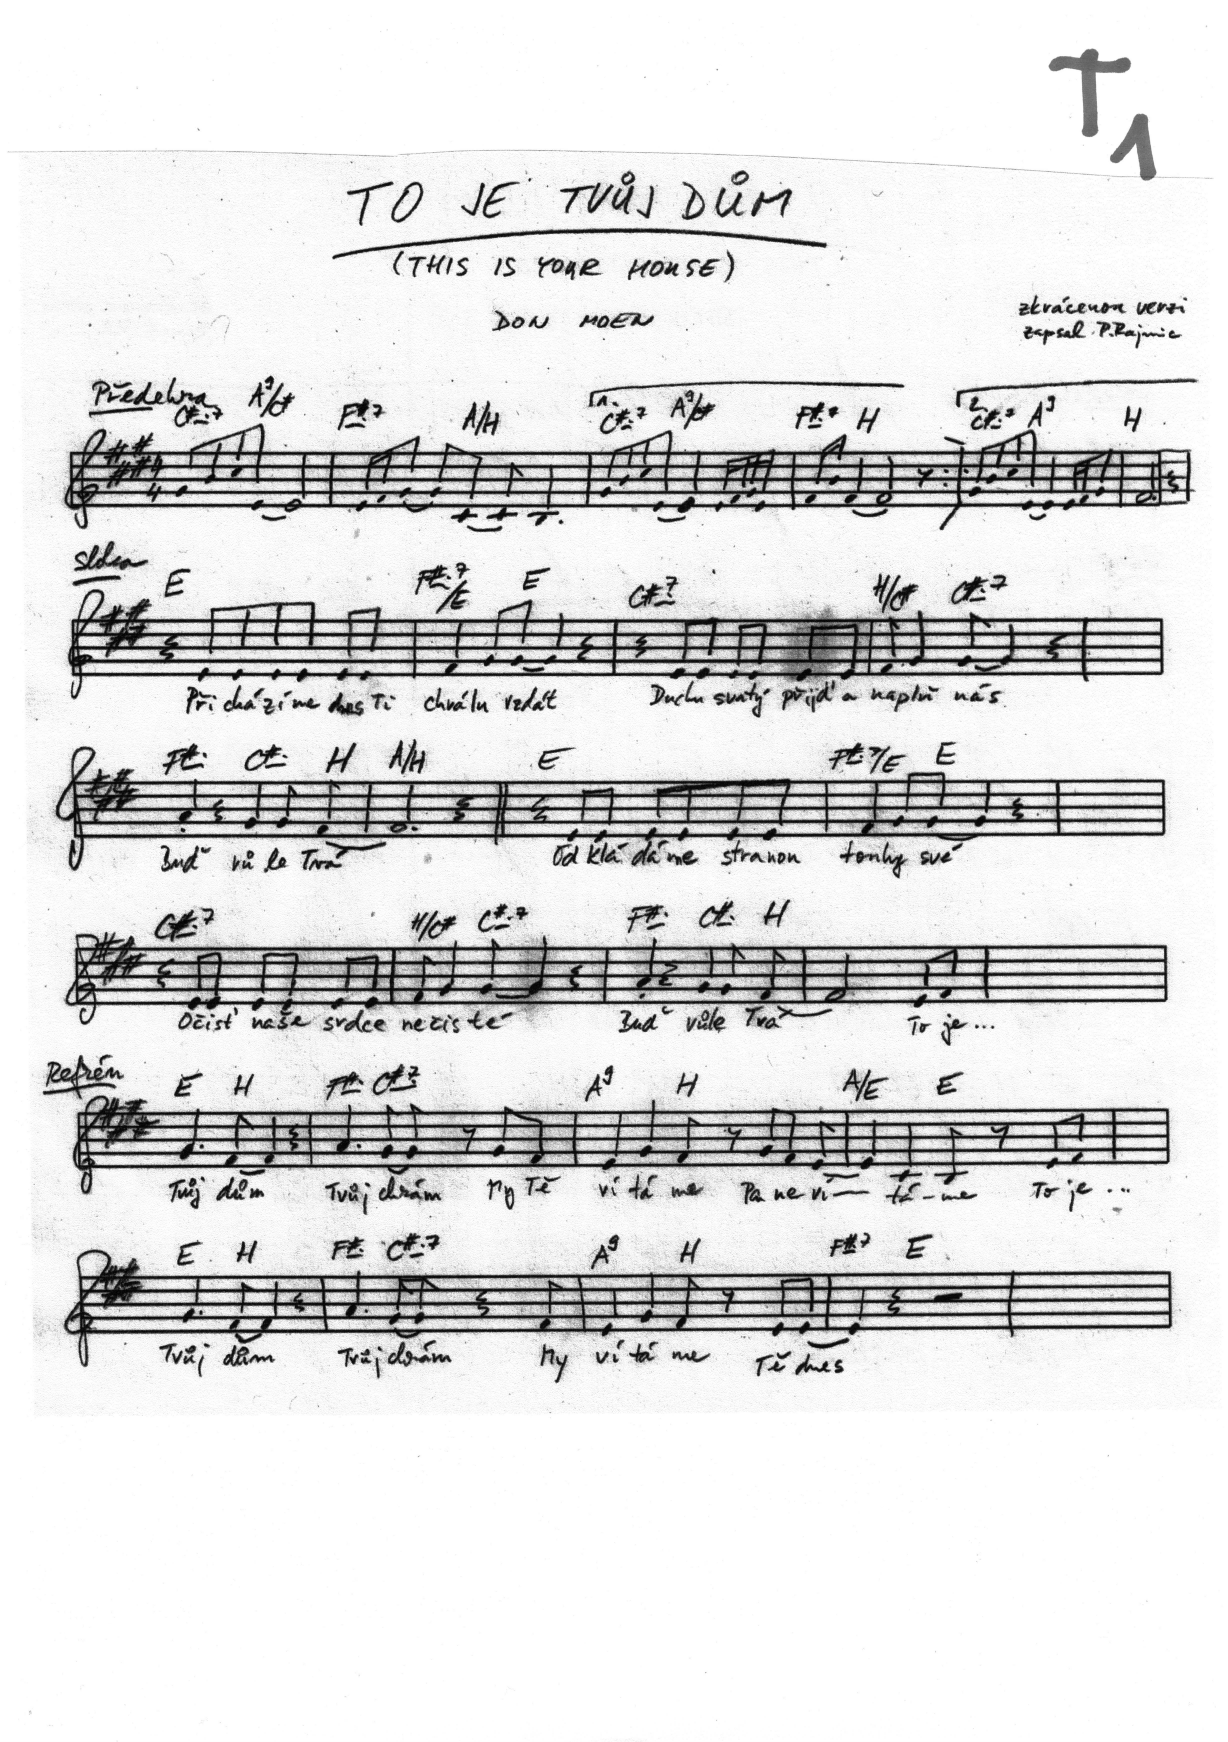 T1
TO JE TVŮJ DŮM
(THIS IS YOUR HOUSE)
DON MOEN
zkrácenou verzi
zapsal P. Rajmic
Předehra
C#-7 A9/C# F#-7 A/H 1. C#-7 A9/C# F#-7 H 2. C#-7 A9 H
4/4
sloka
E F#-7/E E C#-7 H/C# C#-7
Při cházíme dnes Ti chválu vzdát Duchu svatý přijď a naplň nás
F#- C#- H A/H E F#-7/E E
Buď vů le Tvá Od klá dá me stranou touhy své
C#-7 H/C# C#-7 F#- C#- H
Očisť naše srdce nečis té Buď vůle Tvá To je ...
Refrén
E H F#- C#-7 A9 H A/E E
Tvůj dům Tvůj chrám My Tě ví tá me Pa ne ví — tá - me To je ...
E H F#- C#-7 A9 H F#-7 E
Tvůj dům Tvůj chrám My ví tá me Tě dnes